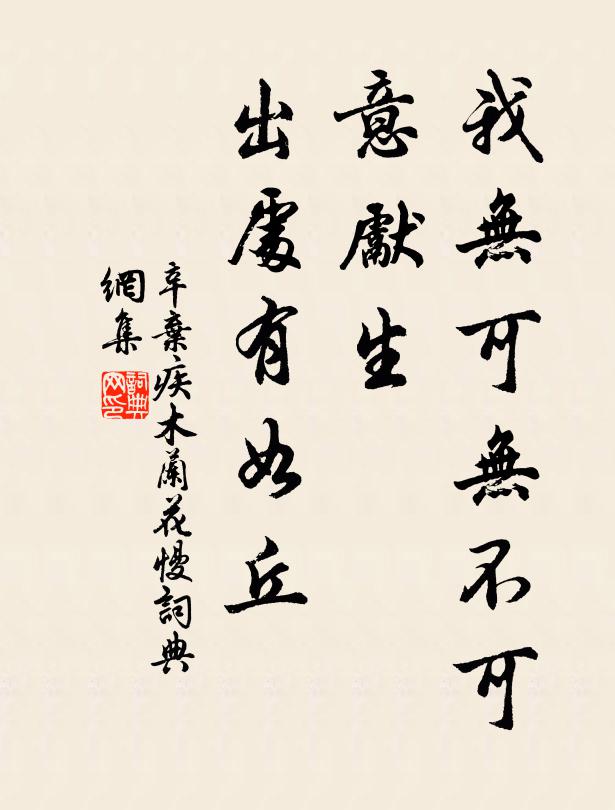 我無可無不可
意獻生
出處有如丘
辛棄疾木蘭花慢詞典
網集
詞典
网印